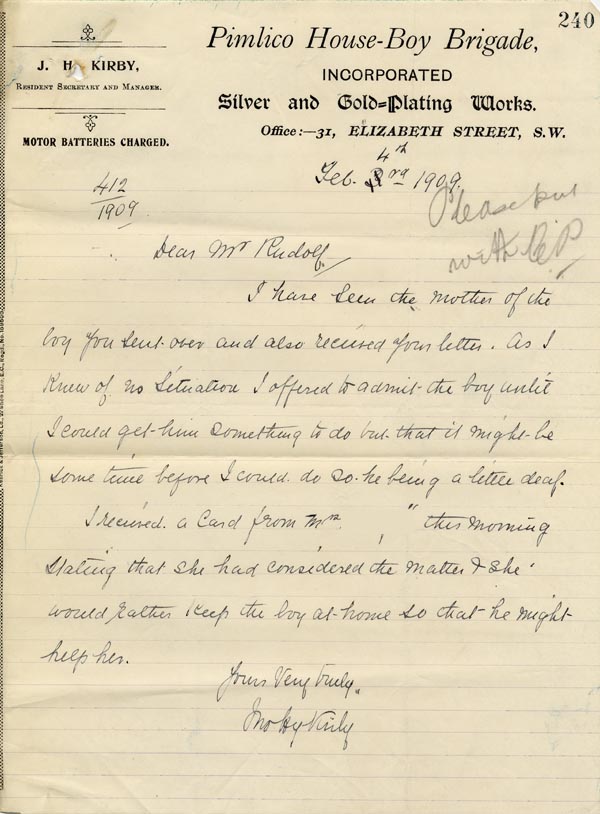 240
Pimlico House-Boy Brigade,
INCORPORATED
Silver and Gold=Plating Works.
Office:—31, ELIZABETH STREET, S.W.
J. H. KIRBY,
RESIDENT SECRETARY AND MANAGER.
MOTOR BATTERIES CHARGED.
4th
Feb. 3rd 1909.
412
1909
Please put
with
Dear Mr Rudolf
I have seen the mother of the
boy you sent over and also recieved your letter. As I
knew of no situation I offered to admit the boy until
I could get him something to do but that it might be
some time before I could do so he being a little deaf.
I recieved a Card from Mrs. , " this morning
stating that she had considered the matter & she
would rather keep the boy at home so that he might
help her.
Yours Very truly,
Jno Hy Kirby